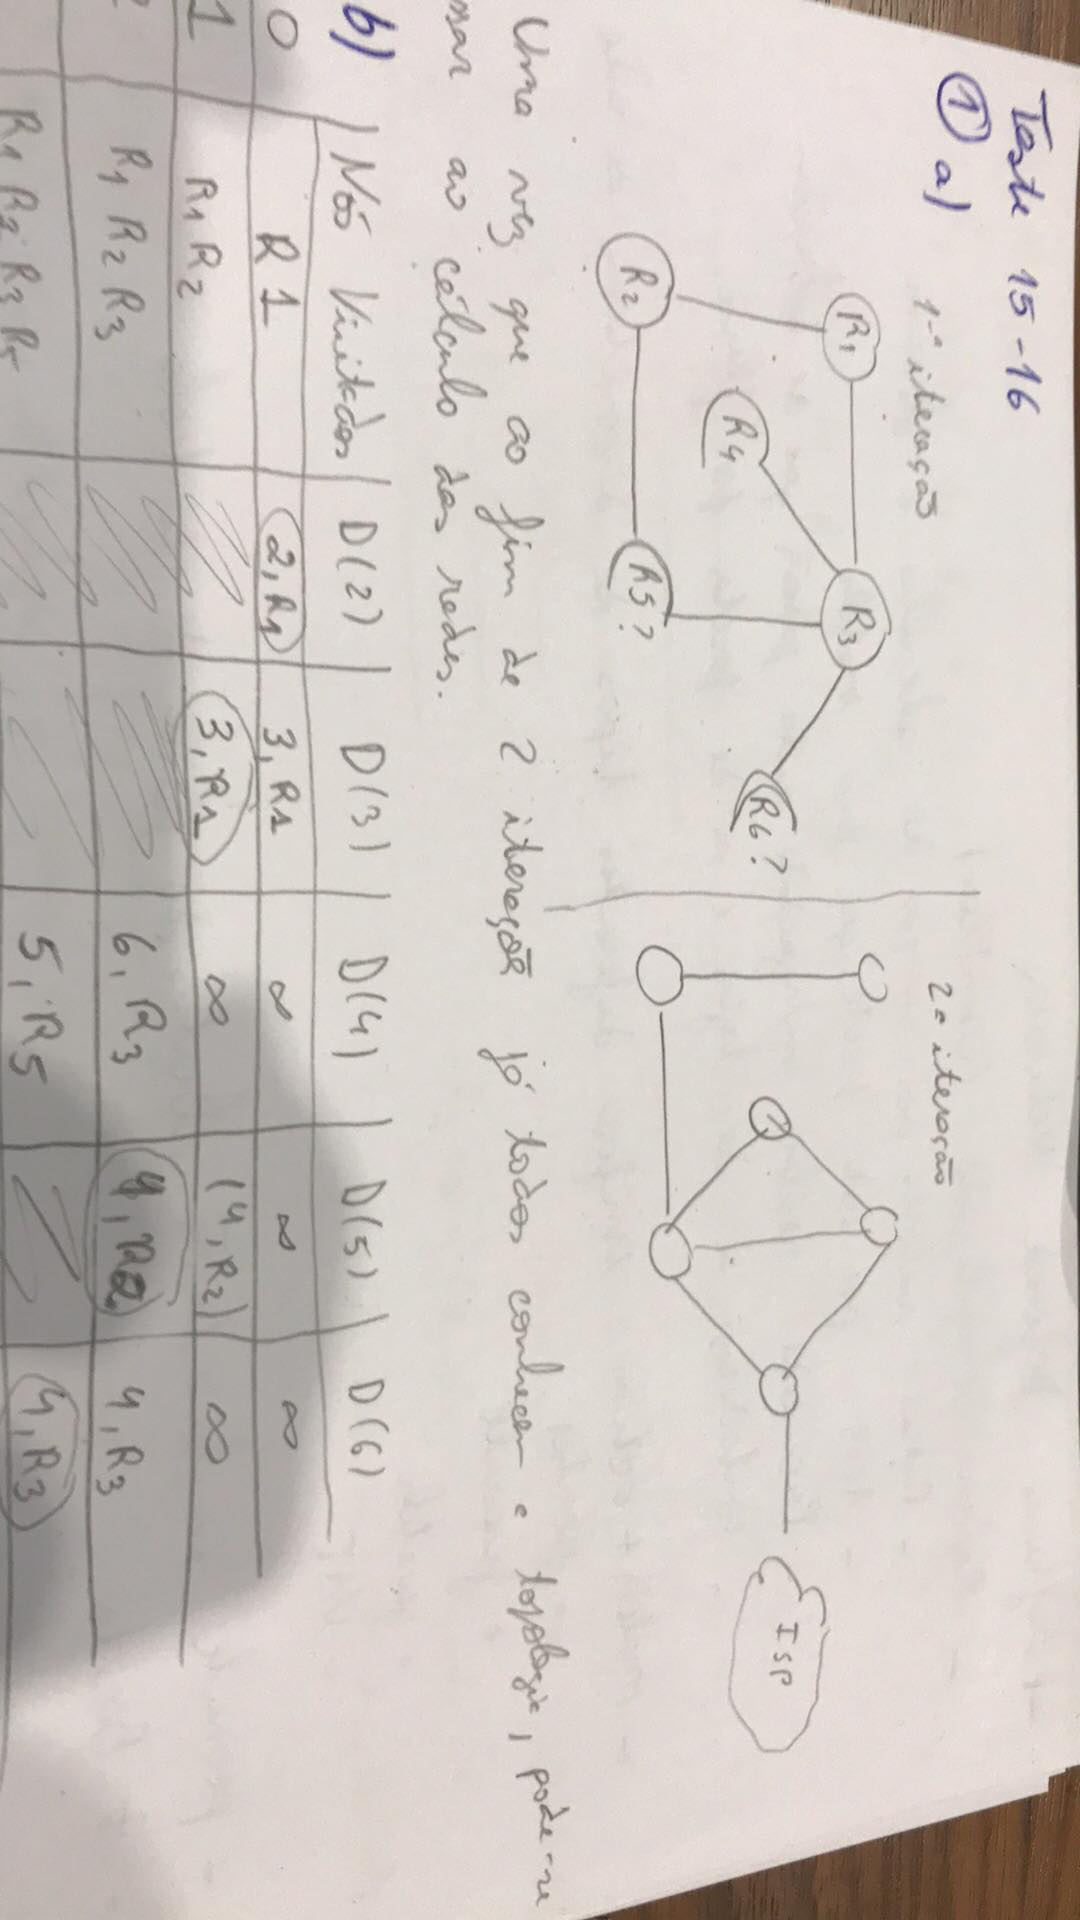 Teste 15-16
① a)
1ª iteração
2ª iteração
R1 R3
ISP
R6?
R4
R2 R5?
Uma vez que ao fim de 2 iteração já todos conhecem a topologia, pode-se
ssar ao cálculo das redes.
b) Nós Visitados D(2) D(3) D(4) D(5) D(6)
0 R1 2, R1 3, R1 ∞ ∞ ∞
1 R1 R2 3, R1 ∞ (4, R2) ∞
R1 R2 R3 6, R3 4, R2 4, R3
R1 R2 R3 R5 5, R5 4, R3